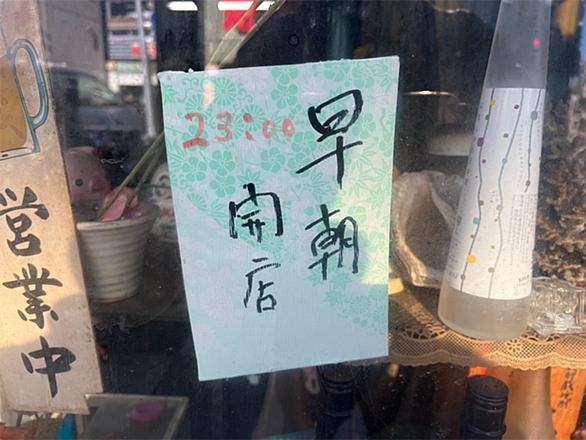 早朝
23:00
開店
営業中